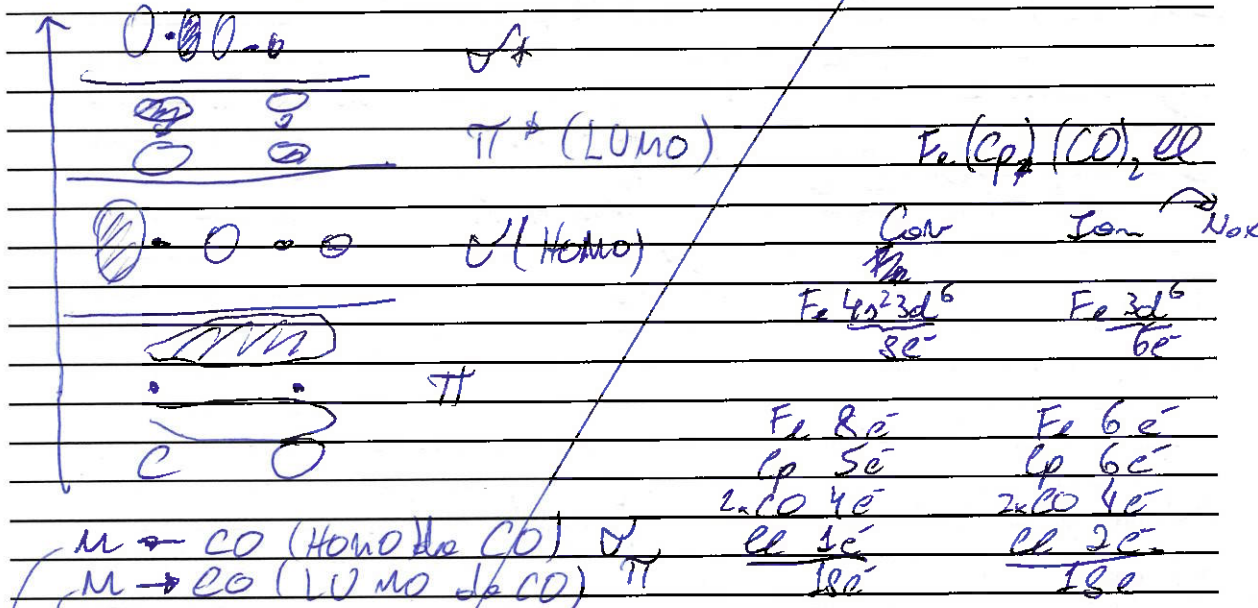 σ*
π* (LUMO)
σ (HOMO)
π
C O
M ← CO (HOMO do CO) σ
M → CO (LUMO do CO) π
Fe(Cp)(CO)₂Cl
Cov Ion Nox
Fe 4s²3d⁶ Fe 3d⁶
8e⁻ 6e⁻
Fe 8e⁻ Fe 6e⁻
Cp 5e⁻ Cp 6e⁻
2xCO 4e⁻ 2xCO 4e⁻
Cl 1e⁻ Cl 2e⁻
18e⁻ 18e